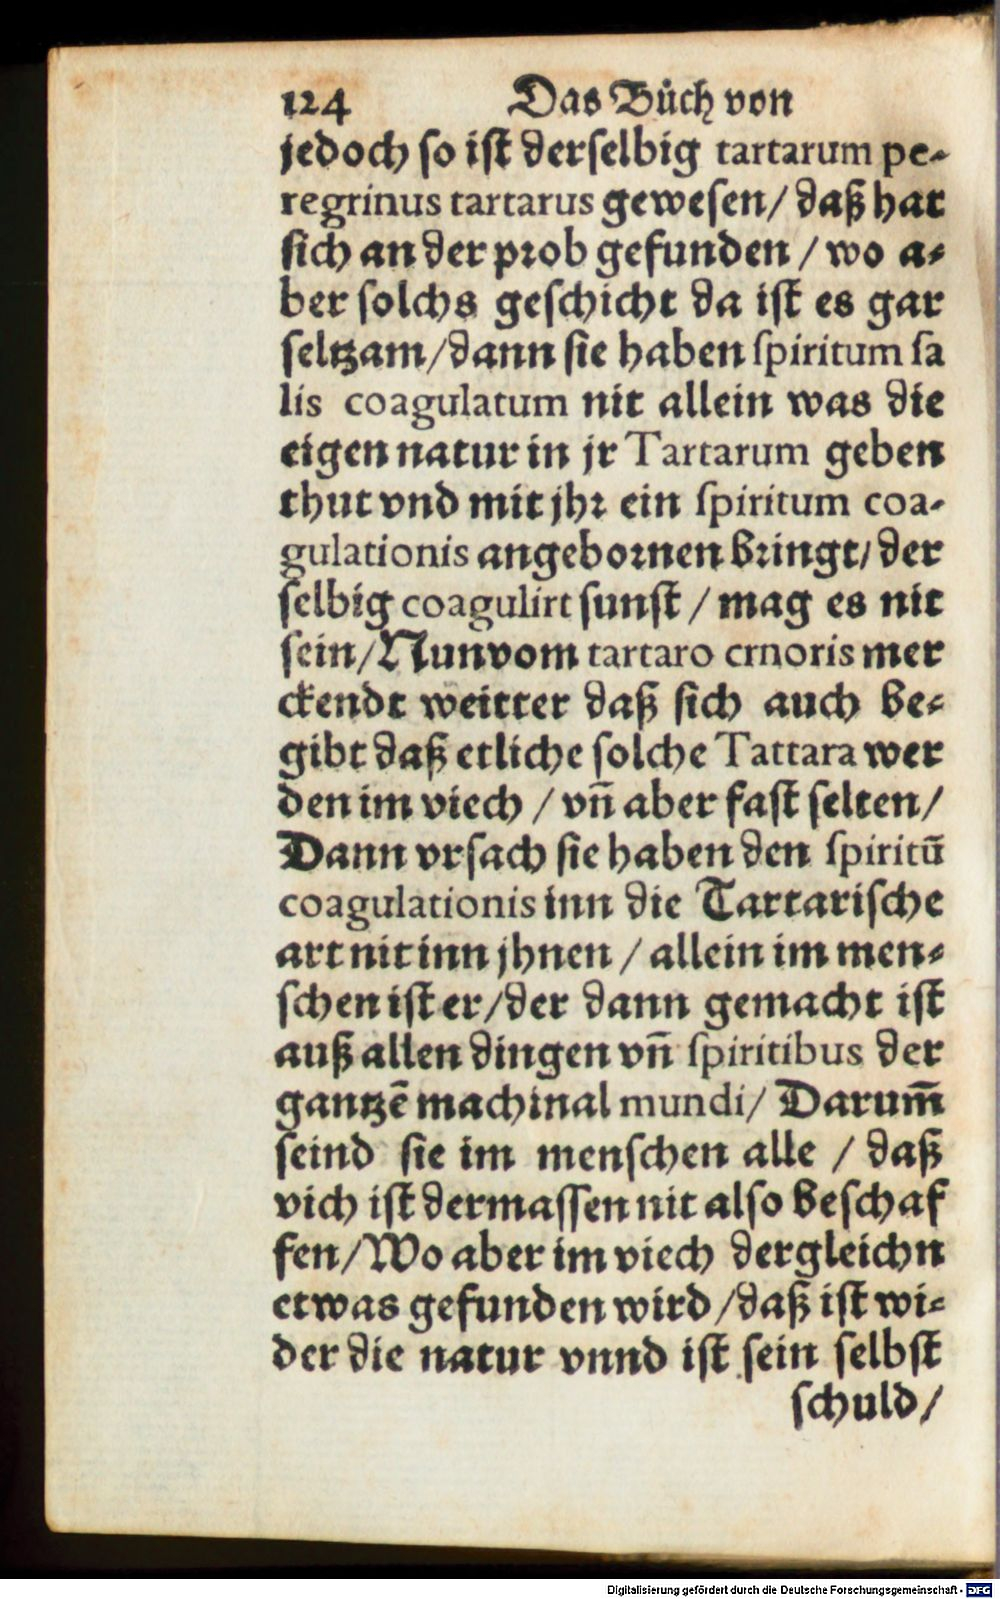 124 Das Bůch von
jedoch so ist derselbig tartarum pe-
regrinus tartarus gewesen/ daß hat
sich an der prob gefunden / wo a-
ber solchs geschicht da ist es gar
seltzam/dann sie haben spiritum sa
lis coagulatum nit allein was die
eigen natur in jr Tartarum geben
thut vnd mit jhr ein spiritum coa-
gulationis angebornen bringt/ der
selbig coagulirt sunst / mag es nit
sein/Nun vom tartaro crnoris mer
ckendt weitter daß sich auch be-
gibt daß etliche solche Tattara wer
den im viech / vñ aber fast selten/
Dann vrsach sie haben den spiritū
coagulationis inn die Tartarische
art nit inn jhnen / allein im men-
schen ist er/der dann gemacht ist
auß allen dingen vñ spiritibus der
gantzē machinal mundi/ Darum̄
seind sie im menschen alle / daß
vich ist dermassen nit also beschaf
fen/Wo aber im viech dergleichn
etwas gefunden wird/daß ist wi-
der die natur vnnd ist sein selbst
schuld/
Digitalisierung gefördert durch die Deutsche Forschungsgemeinschaft - DFG